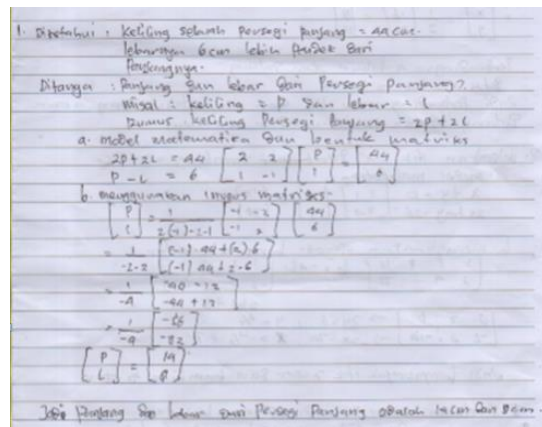 1. Diketahui : keliling sebuah persegi panjang = 44 cm.
lebarnya 6 cm lebih pendek dari
panjangnya.
Ditanya : Panjang dan lebar dari Persegi panjang?
misal : keliling = P dan lebar = l
Rumus keliling Persegi Panjang = 2P + 2l
a. model matematika dan bentuk matriks
2P + 2L = 44 [2 2 / 1 -1] [P / l] = [44 / 6]
P - L = 6
b. menggunakan invers matriks.
[P / L] = 1 / 2(-1)-2·1 [-1 -2 / -1 2] [44 / 6]
= 1 / -2-2 [(-1) 44 + (2) · 6 / (-1) 44 + 2 · 6]
= 1 / -4 [-44 - 12 / -44 + 12]
= 1 / -4 [-56 / -32]
[P / L] = [14 / 8]
Jadi Panjang dan lebar dari Persegi Panjang adalah 14 cm dan 8 cm.